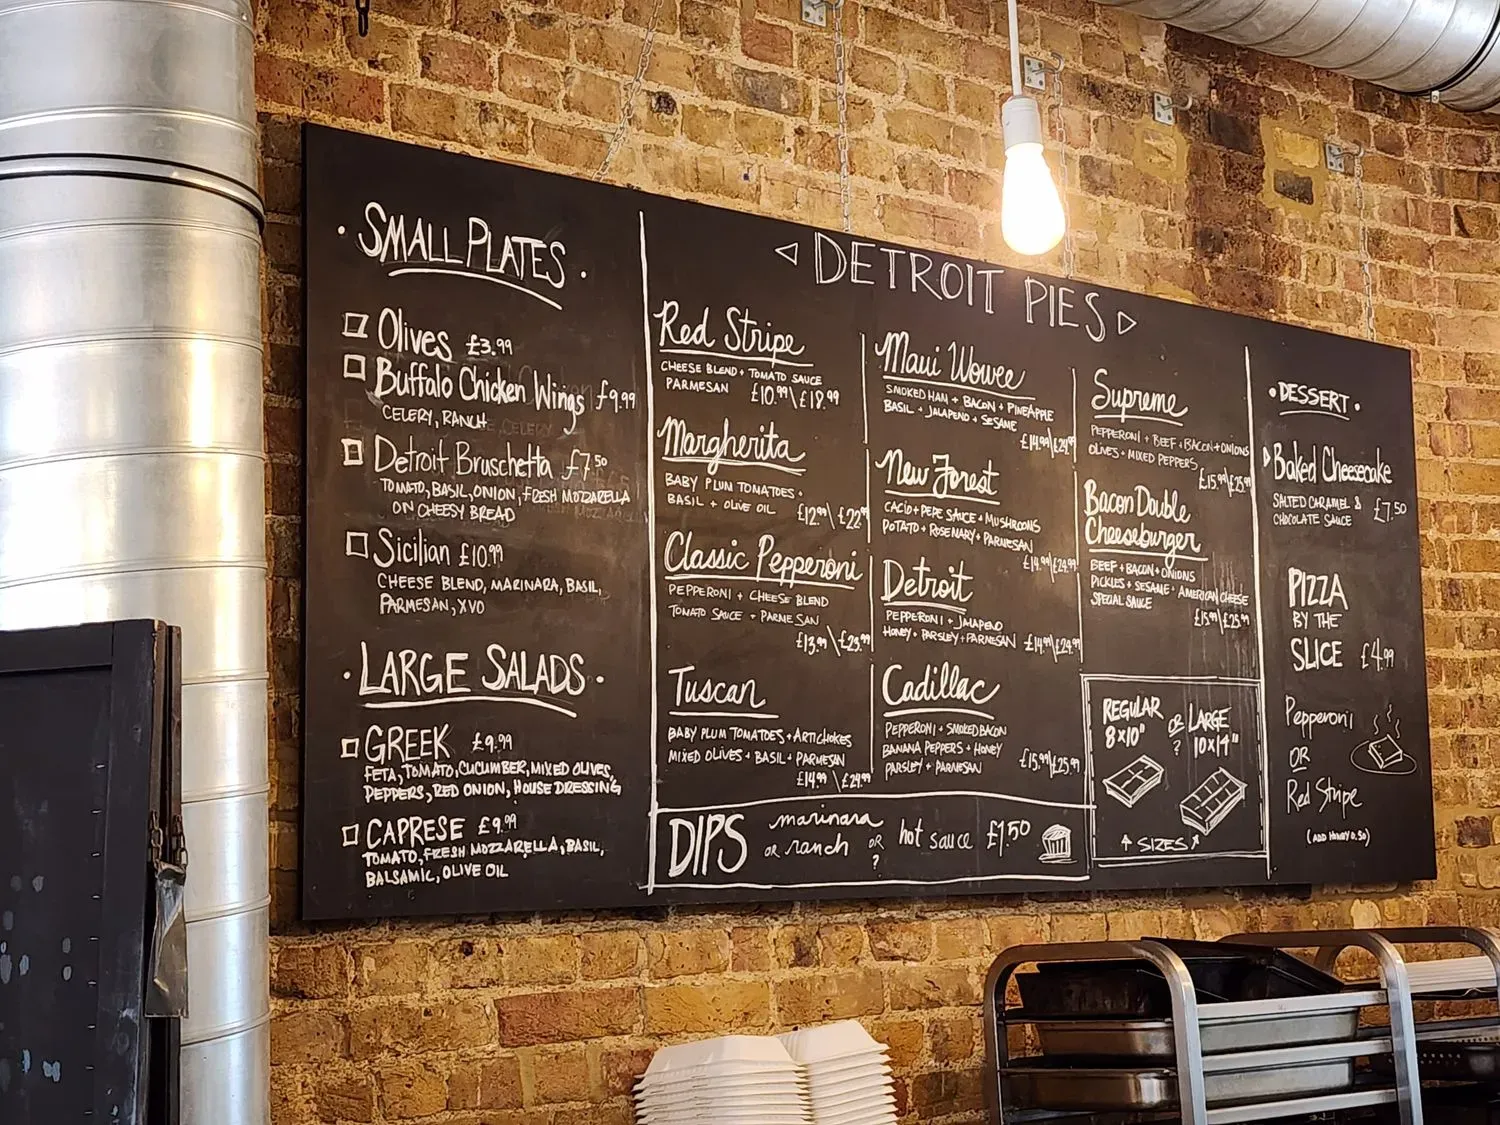 · SMALL PLATES ·
Olives £3.99
Buffalo Chicken Wings £9.99
CELERY, RANCH
Detroit Bruschetta £7.50
TOMATO, BASIL, ONION, FRESH MOZZARELLA
ON CHEESY BREAD
Sicilian £10.99
CHEESE BLEND, MARINARA, BASIL,
PARMESAN, XVO
· LARGE SALADS ·
GREEK £9.99
FETA, TOMATO, CUCUMBER, MIXED OLIVES,
PEPPERS, RED ONION, HOUSE DRESSING
CAPRESE £9.99
TOMATO, FRESH MOZZARELLA, BASIL,
BALSAMIC, OLIVE OIL
DETROIT PIES
Red Stripe
CHEESE BLEND + TOMATO SAUCE
PARMESAN £10.99\£18.99
Margherita
BABY PLUM TOMATOES +
BASIL + OLIVE OIL £12.99\£22.99
Classic Pepperoni
PEPPERONI + CHEESE BLEND
TOMATO SAUCE + PARMESAN
£13.99\£23.99
Tuscan
BABY PLUM TOMATOES + ARTICHOKES
MIXED OLIVES + BASIL + PARMESAN
£14.99\£24.99
Maui Wowee
SMOKED HAM + BACON + PINEAPPLE
BASIL + JALAPENO + SESAME
£14.99\£24.99
New Forest
CACIO + PEPE SAUCE + MUSHROOMS
POTATO + ROSEMARY + PARMESAN
£14.99\£24.99
Detroit
PEPPERONI + JALAPENO
HONEY + PARSLEY + PARMESAN £14.99\£24.99
Cadillac
PEPPERONI + SMOKED BACON
BANANA PEPPERS + HONEY
PARSLEY + PARMESAN £15.99\£25.99
Supreme
PEPPERONI + BEEF + BACON + ONIONS
OLIVES + MIXED PEPPERS
£15.99\£25.99
Bacon Double
Cheeseburger
BEEF + BACON + ONIONS
PICKLES + SESAME + AMERICAN CHEESE
SPECIAL SAUCE
£15.99\£25.99
REGULAR OR LARGE
8x10" ? 10x14"
↑ SIZES ↗
DIPS marinara
OR ranch OR hot sauce £1.50
?
· DESSERT ·
Baked Cheesecake
SALTED CARAMEL &
CHOCOLATE SAUCE £7.50
PIZZA
BY THE
SLICE £4.99
Pepperoni
OR
Red Stripe
(ADD HONEY 0.50)